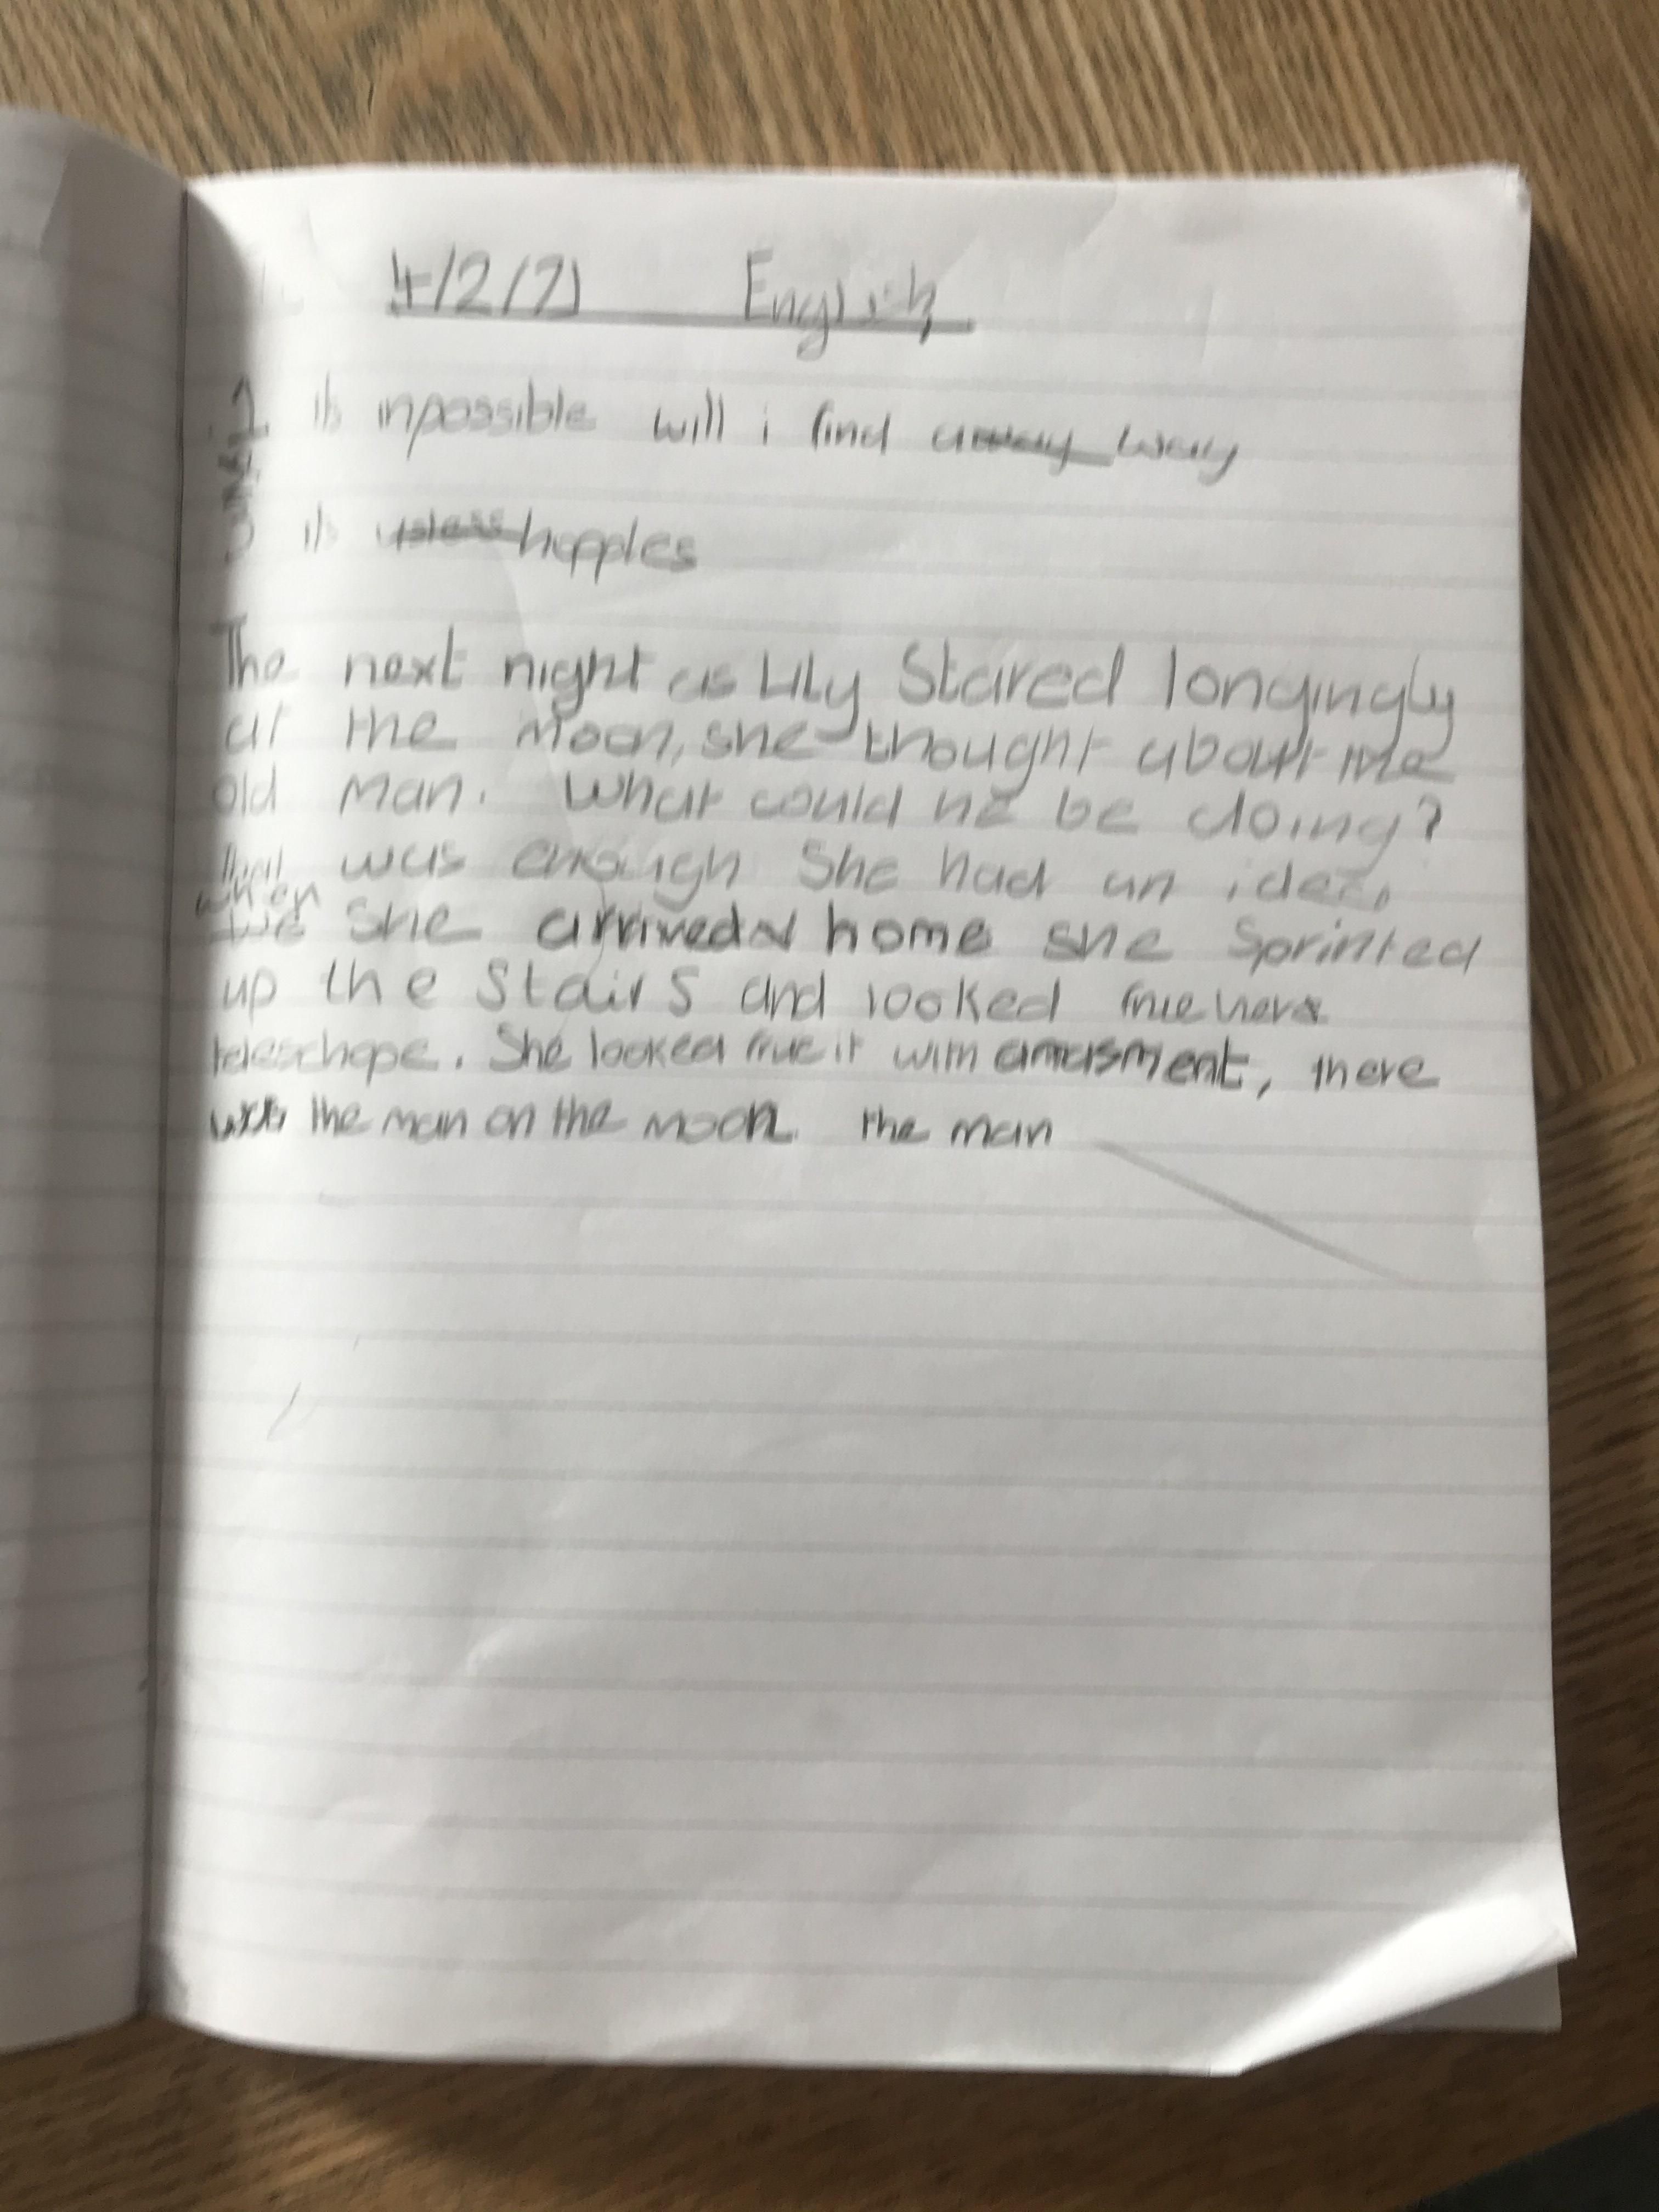 4/2/21 English
its inpossible will i find away way
its usless hopples
The next night as Lily Stared longingly
at the Moon, she thought about the
old Man. What could he be doing?
that was enough She had an idea,
when
we she arrived home she sprinted
up the Stairs and looked frue her
teleschope. She looked frue it with amusment, there
was the man on the moon. the man